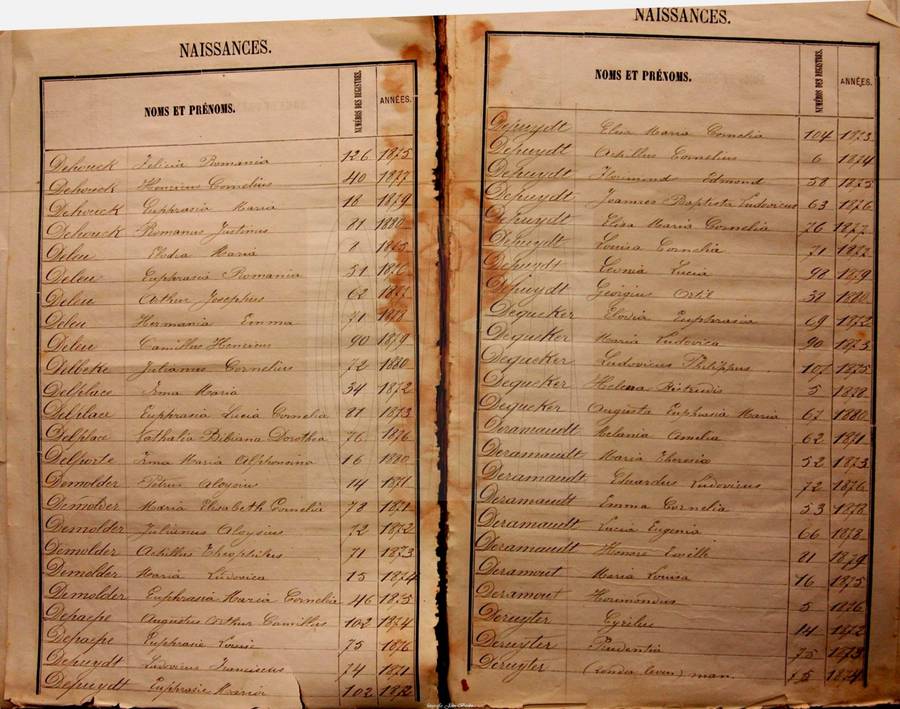 NAISSANCES.
NOMS ET PRÉNOMS. NUMÉROS DES REGISTRES. ANNÉES.
Dehouck Felicia Romania 126 1875
Dehouck Henricus Cornelius 40 1877
Dehouck Euphrasia Maria 18 1879
Dehouck Romanus Justinus 81 1880
Deleu Elodia Maria
Deleu Euphrasia Romania 51 1876
Deleu Arthur Josephus 62
Deleu Hermania Emma 71
Deleu Camillus Henricus 90 1879
Delbeke Julianus Cornelius 72 1880
Delplace Irma Maria 34 1872
Delplace Euphrasia Lucia Cornelia 81 1873
Delplace Nathalia Bibiana Dorothea 76 1876
Delporte Irma Maria Alphonsina 16 1880
Demolder Petrus Aloysius 14 1871
Demolder Maria Elisabeth Cornelia 78 1871
Demolder Julianus Aloysius 72 1872
Demolder Achillus Theophilus 71 1873
Demolder Maria Ludovica 15 1874
Demolder Euphrasia Maria Cornelia 46 1875
Depaepe Augustus Arthur Camillus 102 1874
Depaepe Euphrasie Louise 75 1876
Depuydt Ludovicus Franciscus 74 1871
Depuydt Euphrasie Maria 102 1872
NAISSANCES.
NOMS ET PRÉNOMS. NUMÉROS DES REGISTRES. ANNÉES.
Depuydt Elisa Maria Cornelia 104 1873
Depuydt Achillus Cornelius 6 1874
Depuydt Florimond Edmond 58 1875
Depuydt Joannes Baptista Ludovicus 63 1876
Depuydt Elisa Maria Cornelia 76 1877
Depuydt Louisa Cornelia 71
Depuydt Leonia Lucia 98 1879
Depuydt Georgius 38 1880
Dequeker Elodia Euphrasia 69 1872
Dequeker Maria Ludovica 90 1873
Dequeker Ludovicus Philippus 107 1875
Dequeker Helena 5 1878
Dequeker Augusta Euphrasia Maria 67 1880
Deramaudt Melania Amelia 62 1871
Deramaudt Maria Theresia 52 1873
Deramaudt Eduardus Ludovicus 72 1876
Deramaudt Emma Cornelia 53 1878
Deramaudt Lucia Eugenia 66 1878
Deramaudt Honoré 81 1879
Deramout Maria Louisa 16 1875
Deramout 5 1876
Deruyter Cyrilus 14 1872
Deruyter Prudentia 75 1873
Deruyter man. 15 1874